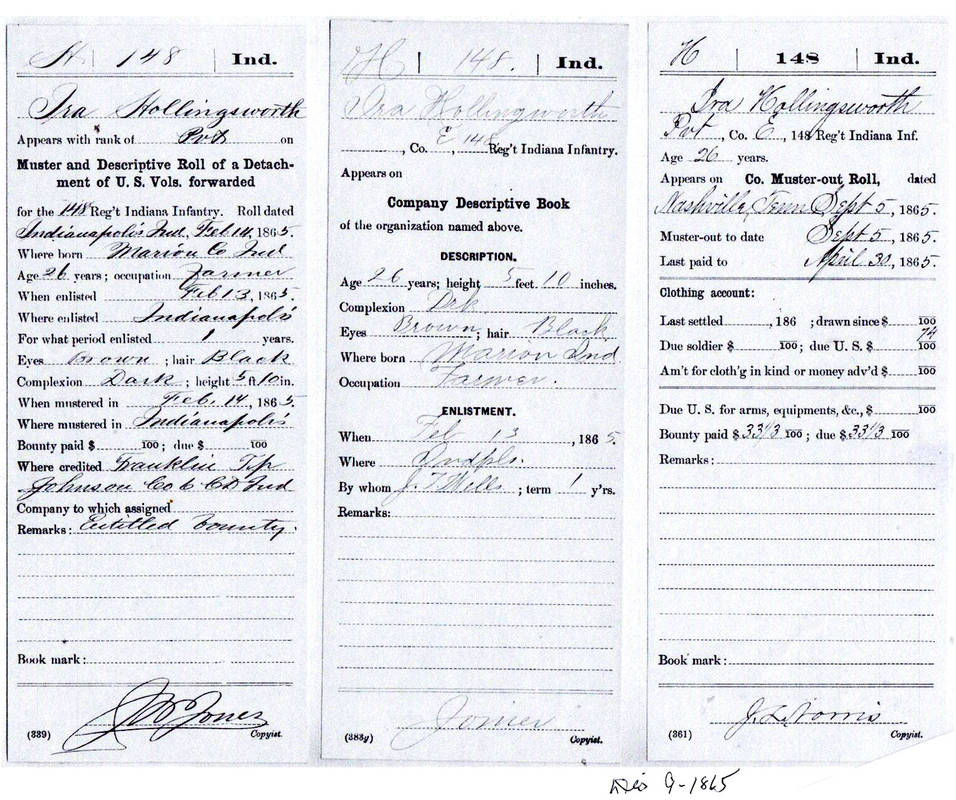 H | 148 | Ind.
Ira Hollingsworth
Appears with rank of Pvt on
Muster and Descriptive Roll of a Detach-
ment of U. S. Vols. forwarded
for the 148 Reg't Indiana Infantry. Roll dated
Indianapolis Ind, Feb 14, 1865.
Where born Marion Co Ind
Age 26 years; occupation Farmer
When enlisted Feb 13, 1865.
Where enlisted Indianapolis
For what period enlisted 1 years.
Eyes Brown; hair Black
Complexion Dark; height 5 ft 10 in.
When mustered in Feb. 14, 1865.
Where mustered in Indianapolis
Bounty paid $ 100; due $ 100
Where credited Franklin Tp
Johnson Co 6 CD Ind
Company to which assigned
Remarks: Entitled bounty.
Book mark:
Jones
(339) Copyist.
H | 148. | Ind.
Ira Hollingworth
, Co. E, 148 Reg't Indiana Infantry.
Appears on
Company Descriptive Book
of the organization named above.
DESCRIPTION.
Age 26 years; height 5 feet 10 inches.
Complexion Drk
Eyes Brown; hair Black
Where born Marion Ind
Occupation Farmer.
ENLISTMENT.
When Feb 13, 1865
Where Indpls.
By whom J. T Mills; term 1 y'rs.
Remarks:
(383g) Copyist.
H | 148 | Ind.
Ira Hollingsworth
Pvt, Co. E, 148 Reg't Indiana Inf.
Age 26 years.
Appears on Co. Muster-out Roll, dated
Nashville, Tenn Sept 5, 1865.
Muster-out to date Sept 5, 1865.
Last paid to April 30, 1865.
Clothing account:
Last settled , 186 ; drawn since $ 100
Due soldier $ 100; due U. S. $ 74 100
Am't for cloth'g in kind or money adv'd $ 100
Due U. S. for arms, equipments, &c., $ 100
Bounty paid $ 33 1/3 100; due $ 33 1/3 100
Remarks:
Book mark:
J. L Norris
(361) Copyist.
9-1865